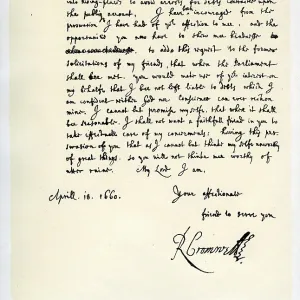 into hiding-places to avoid arrests for debts contracted upon
the publiq account, I have been incouraged from the
perswasion I have had of yor affection to mee, and the
opportunities you now have to show mee kindnesse
to adde this request to the former
solicitations of my friends, that when the Parliament
shall bee met, you would make use of yor interest on
my behalfe that I bee not left liable to debts which I
am confident neither God nor conscience can ever reckon
mine, I cannot but promise my selfe, that when it shall
bee seasonable, I shall not want a faithfull friend in you to
take effectuall care of my concernments; having this per-
swasion of you that as I cannot but think my selfe unworthy
of great things, so you will not thinke mee worthy of
utter ruine. My Lord I am,
Aprill 18. 1660. Your affectionate
friend to serve you
R Cromwell